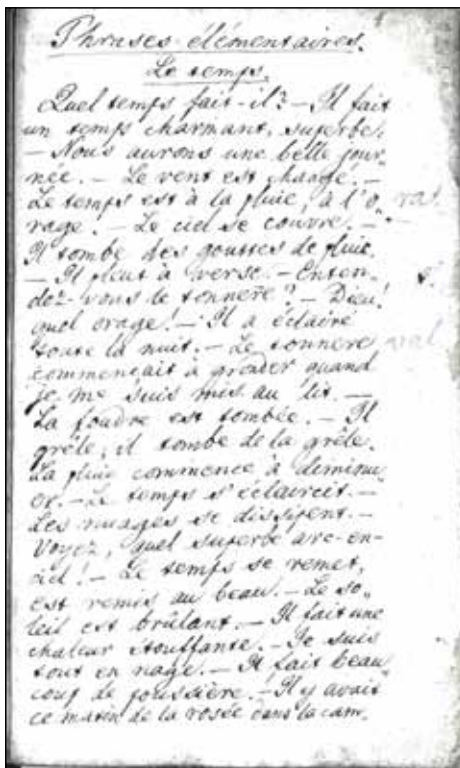 Phrases élémentaires.
Le temps.
Quel temps fait-il? — Il fait
un temps charmant, superbe.
— Nous aurons une belle jour-
née. — Le vent est changé. —
Le temps est à la pluie, à l'o-
rage. — Le ciel se couvre. —
Il tombe des gouttes de pluie.
— Il pleut à verse. — Enten-
dez-vous le tonnere? — Dieu!
quel orage! — Il a éclairé
toute la nuit. — Le tonnere
commençait à gronder quand
je me suis mis au lit. —
La foudre est tombée. — Il
grêle, il tombe de la grêle.
La pluie commence à diminu-
er. — Le temps s'éclaircit. —
Les nuages se dissipent. —
Voyez, quel superbe arc-en-
ciel! — Le temps se remet,
est remis au beau. — Le so-
leil est brûlant. — Il fait une
chaleur étouffante. — Je suis
tout en nage. — Il fait beau
coup de poussière. — Il y avait
ce matin de la rosée dans la cam-